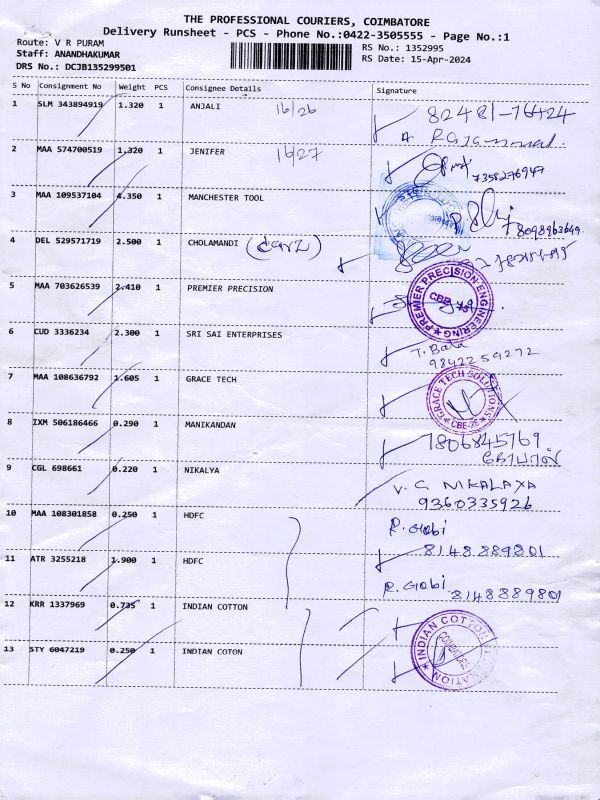 THE PROFESSIONAL COURIERS, COIMBATORE
Delivery Runsheet - PCS - Phone No.:0422-3505555 - Page No.:1
Route: V R PURAM
RS No.: 1352995
Staff: ANANDHAKUMAR
RS Date: 15-Apr-2024
DRS No.: DCJB135299501
S No Consignment No Weight PCS Consignee Details Signature
1 SLM 343894919 1.320 1 ANJALI 16/26 82481-76424
2 MAA 574700519 1.320 1 JENIFER 16/27 7358276947
3 MAA 109537104 4.350 1 MANCHESTER TOOL 8098963649
4 DEL 529571719 2.500 1 CHOLAMANDI
5 MAA 703626539 2.410 1 PREMIER PRECISION PREMIER PRECISION ENGINEERING CBE
6 CUD 3336234 2.300 1 SRI SAI ENTERPRISES T. Bala
9842259272
7 MAA 108636792 1.605 1 GRACE TECH GRACE TECH SOLUTIONS CBE-26
8 IXM 506186466 0.290 1 MANIKANDAN 7806845769
9 CGL 698661 0.220 1 NIKALYA V. G NIKALAYA
9360335926
10 MAA 108301858 0.250 1 HDFC R. Gobi
8148889801
11 ATR 3255218 1.900 1 HDFC R. Gobi 8148889801
12 KRR 1337969 0.735 1 INDIAN COTTON
13 STY 6047219 0.250 1 INDIAN COTON INDIAN COTTON COIMBATORE